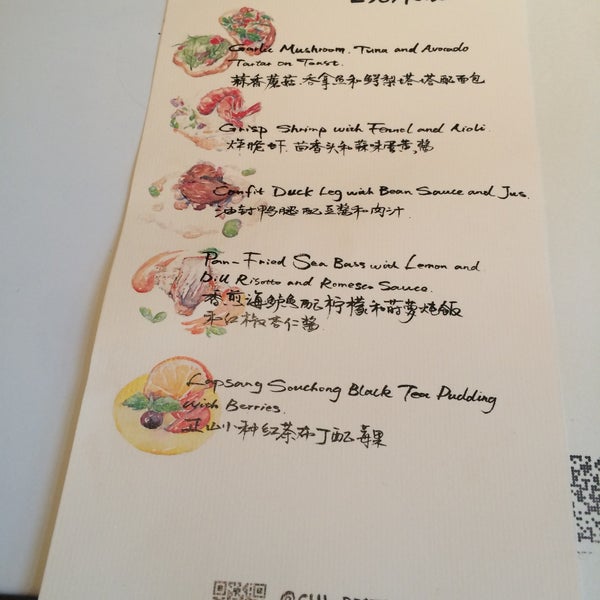 Garlic Mushroom. Tuna and Avocado
Tartar on Toast.
蒜香蘑菇.吞拿鱼和鳄梨塔塔配面包
Crisp Shrimp with Fennel and Aioli.
炸脆虾.茴香头和蒜味蛋黄酱
Confit Duck Leg with Bean Sauce and Jus.
油封鸭腿配豆酱和肉汁.
Pan-Fried Sea Bass with Lemon and
Dill Risotto and Romesco Sauce.
香煎海鲈鱼配柠檬和莳萝烩饭
和红椒杏仁酱.
Lapsang Souchong Black Tea Pudding
with Berries.
正山小种红茶布丁配莓果